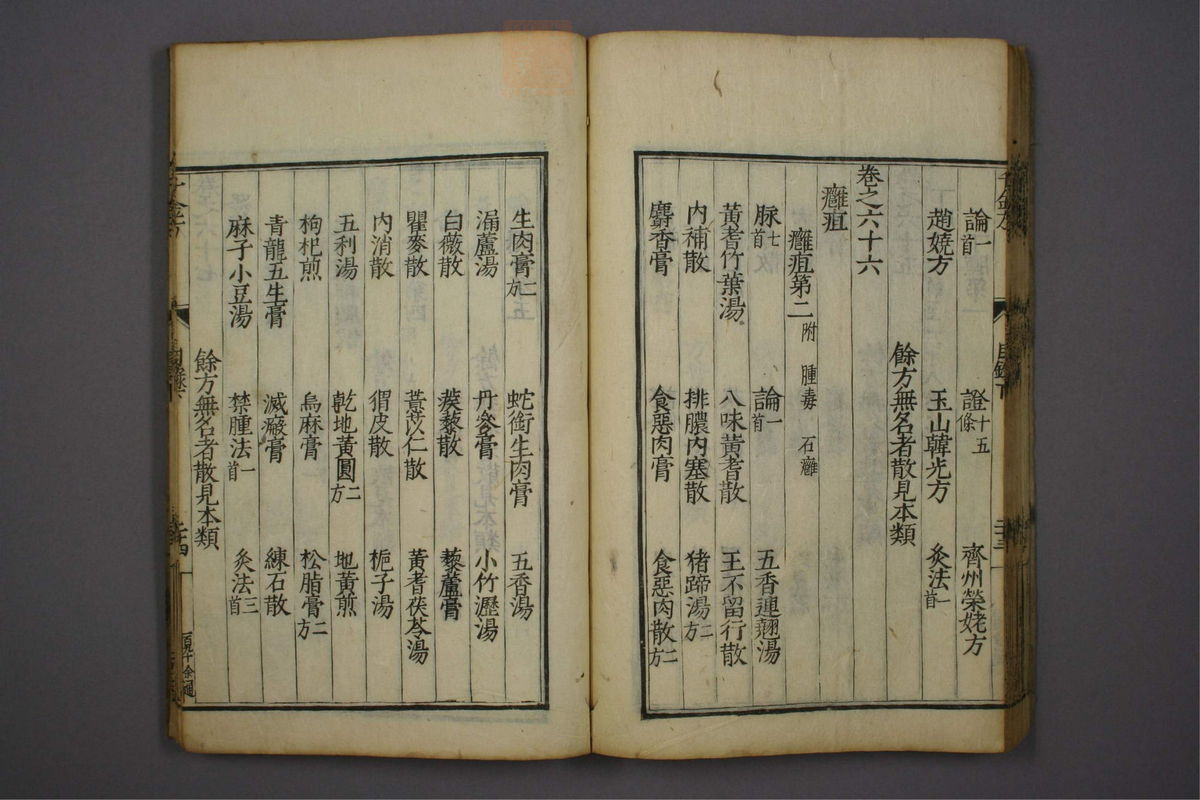 論一首　證十五條　齊州榮姥方
趙嬈方　玉山韓光方　灸法一首
餘方無名者散見本類
卷之六十六
癰疽
癰疽第二附　腫毒　石癰
脉七首　論一首　五香連翹湯
黃耆竹葉湯　八味黃耆散　王不留行散
内補散　排膿内塞散　猪蹄湯二方
麝香膏　食惡肉膏　食惡肉散二方
生肉膏二方　蛇銜生肉膏　五香湯
漏蘆湯　丹參膏　小竹瀝湯
白薇散　蒺藜散　藜蘆膏
瞿麥散　薏苡仁散　黃耆茯苓湯
内消散　猬皮散　梔子湯
五利湯　乾地黃圓二方　地黃煎
枸杞煎　烏麻膏　松脂膏二方
青龍五生膏　滅瘢膏　練石散
麻子小豆湯　禁腫法一首　灸法三首
餘方無名者散見本類